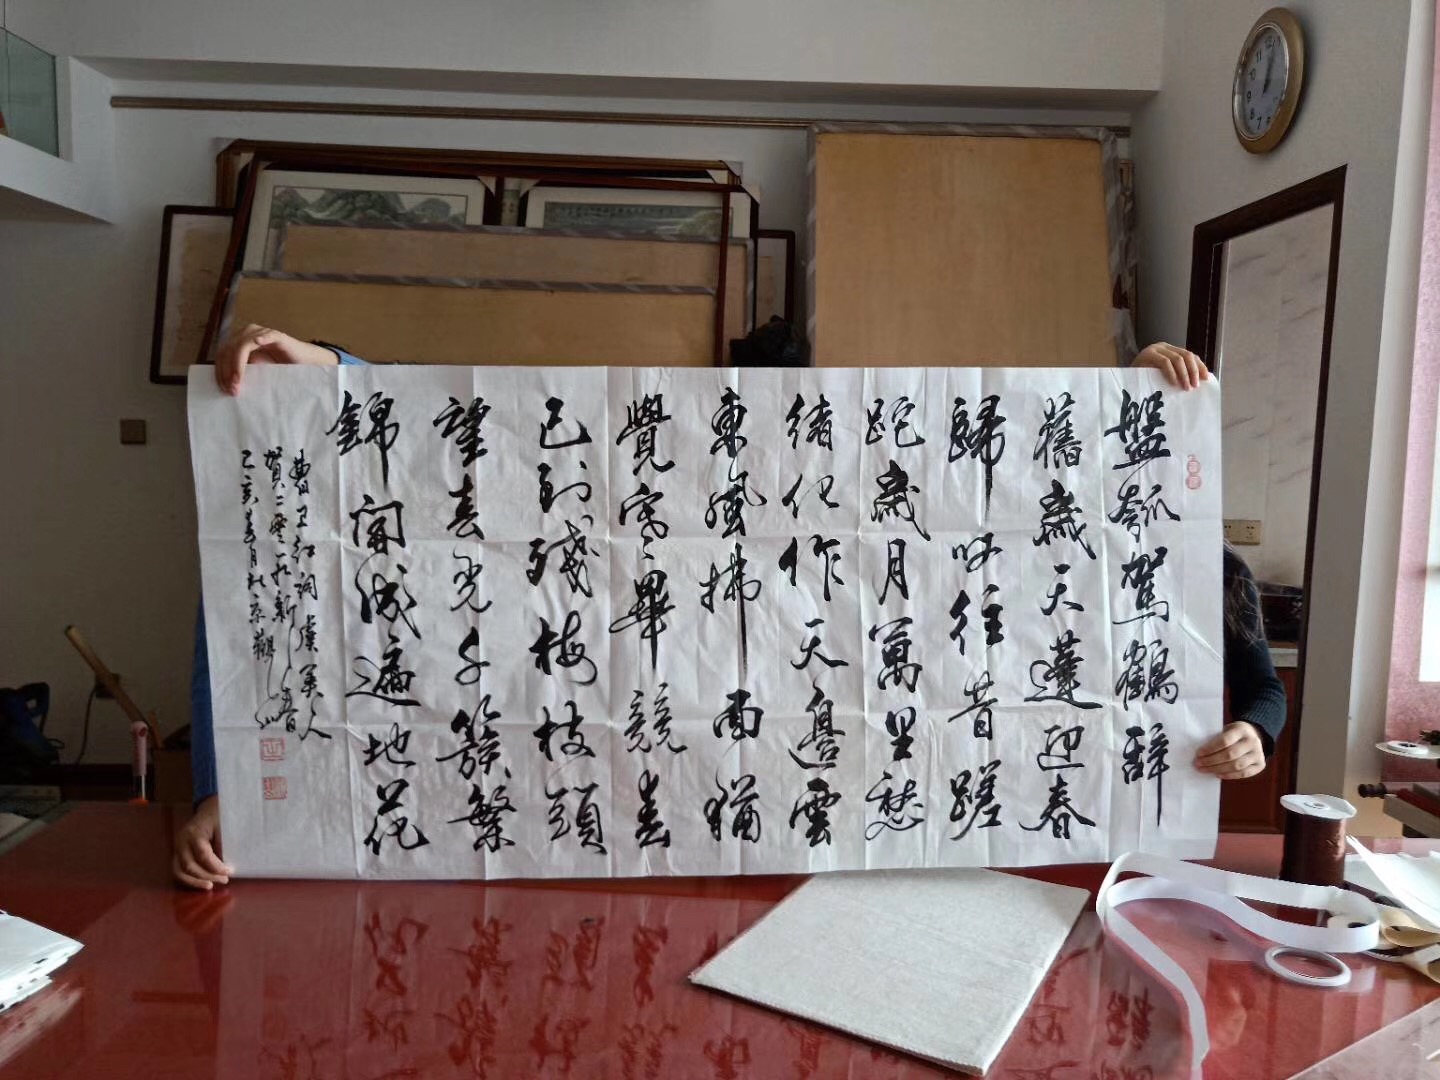 盤瓠駕鶴辭
舊歲天蓬迎春
歸呼往昔蹉
跎歲月萬里愁
緒化作天邊雲
東風拂面猶
覺寒畢競春
已到殘梅枝頭
望春光千簇繁
錦成遍地花
詞虞美人
賀二零一九新春
己亥春月於京